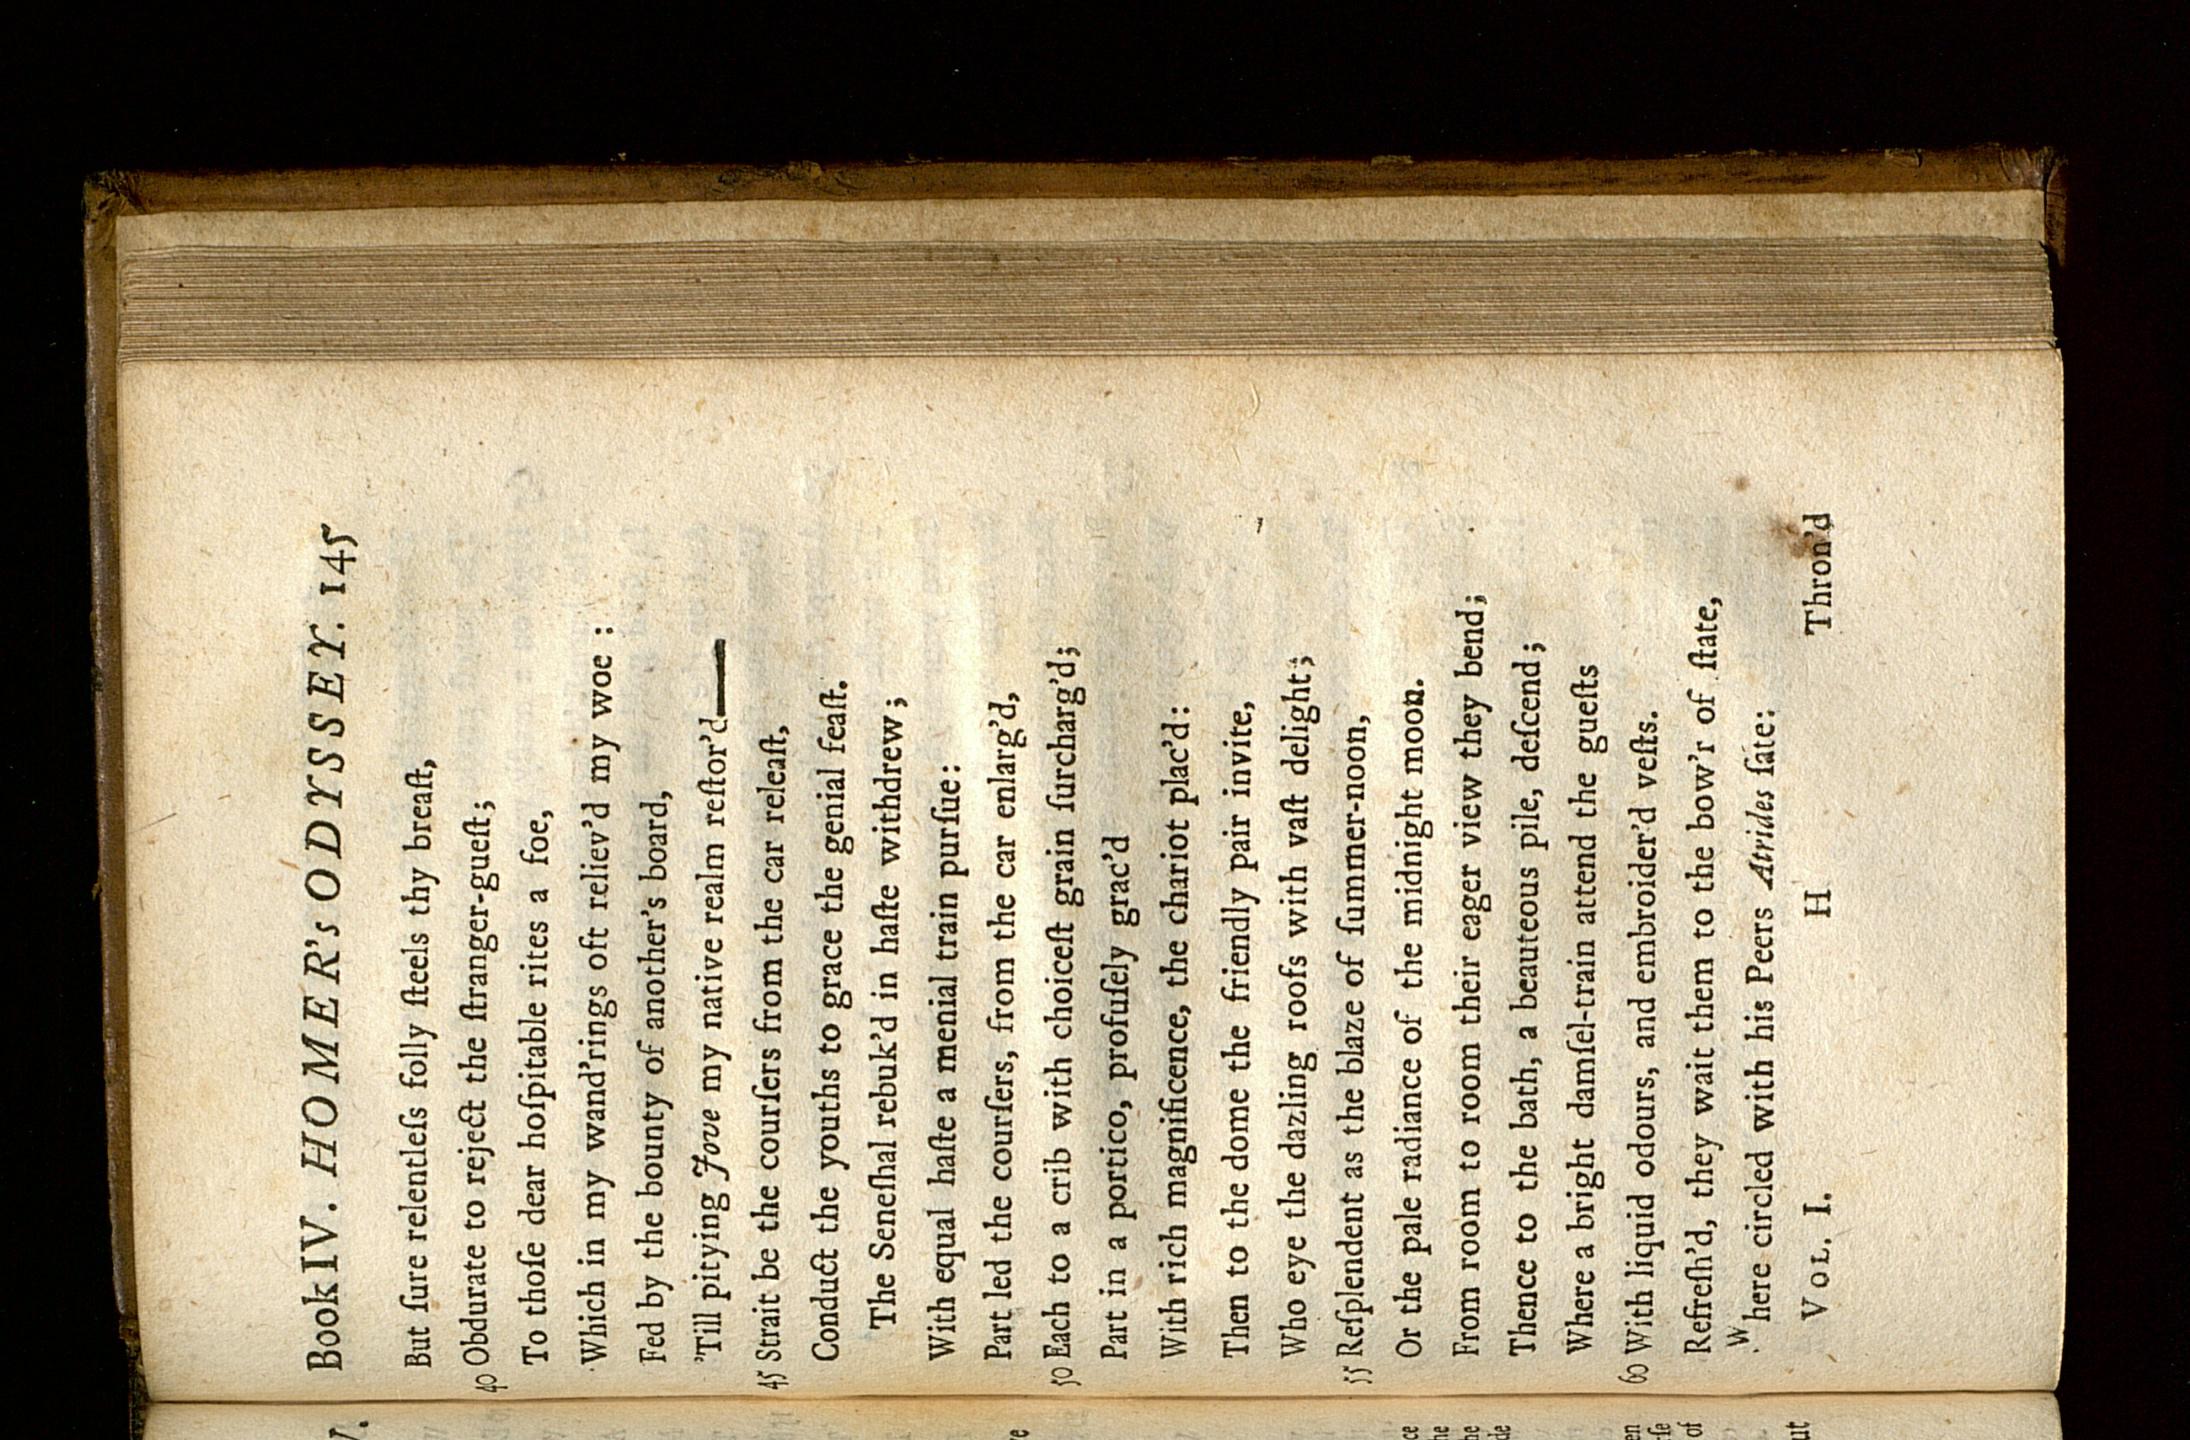 Book IV. HOMER's ODYSSEY. 145
But ſure relentleſs folly ſteels thy breaſt,
40 Obdurate to reject the ſtranger-gueſt;
To thoſe dear hoſpitable rites a foe,
Which in my wand'rings oft reliev'd my woe :
Fed by the bounty of another's board,
'Till pitying Jove my native realm reſtor'd—
45 Strait be the courſers from the car releaſt,
Conduct the youths to grace the genial feaſt.
The Seneſhal rebuk'd in haſte withdrew;
With equal haſte a menial train purſue:
Part led the courſers, from the car enlarg'd,
50 Each to a crib with choiceſt grain ſurcharg'd;
Part in a portico, profuſely grac'd
With rich magnificence, the chariot plac'd:
Then to the dome the friendly pair invite,
Who eye the dazling roofs with vaſt delight;
55 Reſplendent as the blaze of ſummer-noon,
Or the pale radiance of the midnight moon.
From room to room their eager view they bend;
Thence to the bath, a beauteous pile, deſcend;
Where a bright damſel-train attend the gueſts
60 With liquid odours, and embroider'd veſts.
Refreſh'd, they wait them to the bow'r of ſtate,
Where circled with his Peers Atrides ſate:
VOL. I. H Thron'd